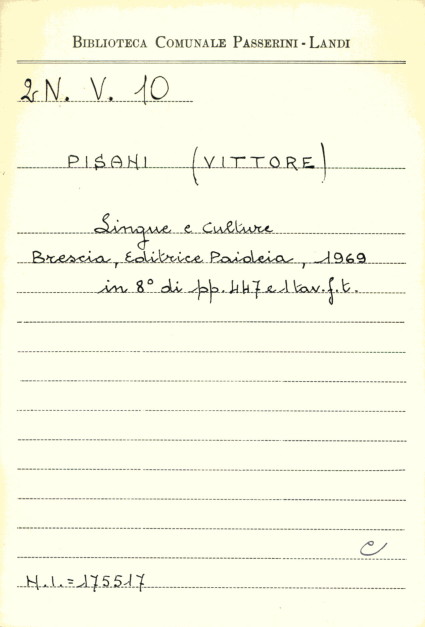 BIBLIOTECA COMUNALE PASSERINI - LANDI
2 N. V. 10
PISANI (VITTORE)
Lingue e Culture
Brescia, Editrice Paideia, 1969
in 8° di pp. 447 e 1 tav. f. t.
C
N.I. = 175517